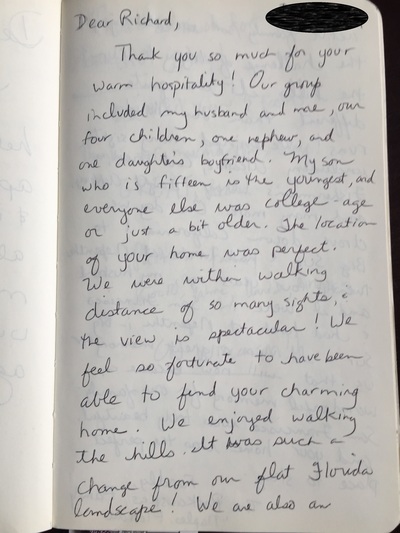 Dear Richard,
Thank you so much for your
warm hospitality! Our group
included my husband and me, our
four children, one nephew, and
one daughter's boyfriend. My son
who is fifteen is the youngest, and
everyone else was college-age
or just a bit older. The location
of your home was perfect.
We were within walking
distance of so many sights, &
the view is spectacular! We
feel so fortunate to have been
able to find your charming
home. We enjoyed walking
the hills. It was such a
change from our flat Florida
landscape! We are also an